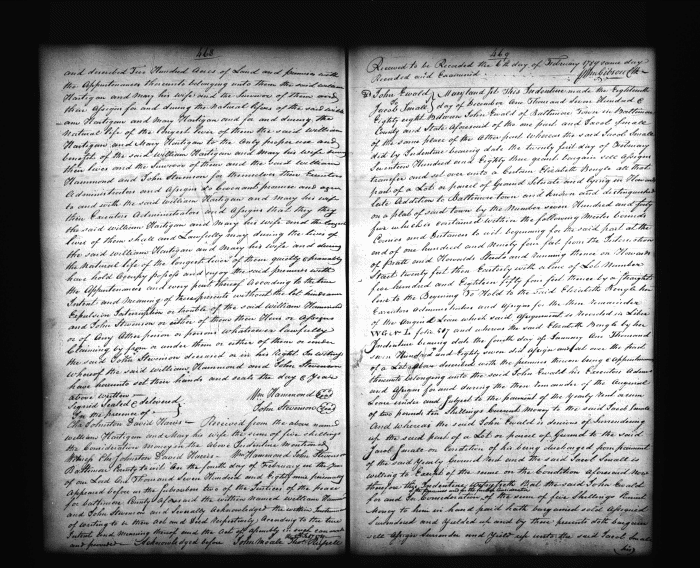 468
and described Two Hundred Acres of Land and premises with
the Appurtenances thereunto belonging unto them the said William
Hartigan and Mary his wife and the Survivor of them and
their Assigns for and during the Natural lifes of the said
am Hartigan and Mary Hartigan and for and during the
Natural life of the longest liver of them the said William
Hartigan and Mary Hartigan to the only proper use and
benefit of the said William Hartigan and Mary his wife
their lives and the Survivor of them and the said William
Hammond and John Stevenson for themselves their Executors
Administrators and Assigns do Covenant promise and agree
to and with the said William Hartigan and Mary his wife
their Executors Administrators and Assigns that they
the said William Hartigan and Mary his wife and the longest
liver of them shall and Lawfully may during the lives of
the said William Hartigan and Mary his wife and during
the Natural life of the longest liver of them quietly & peaceably
have hold Occupy possess and enjoy the said premises with
the Appurtenances and every part thereof According to the true
Intent and Meaning of these presents without the let hindrance
Expulsion Interruption or trouble of the said William Hammond
and John Stevenson or either of them their Heirs or Assigns
or of Any Other person or persons whatsoever lawfully
Claiming by from or under them or either of them or under
the said John Stevenson deceased or in his Right In Witness
whereof the said William Hammond and John Stevenson
have hereunto set their hands and seals the day & Year
above written
Signed Sealed & delivered } Wm Hammond (Seal)
In the presence of } John Stevenson (Seal)
Chs Johnston David Harris Received from the above named
William Hartigan and Mary his wife the sum of five shillings
the Consideration money in the above Indenture Mentioned
Witness Chs Johnston David Harris Wm Hammond John Stevenson
Baltimore County to wit Be it on the fourth day of February in the Year
of our Lord One Thousand Seven Hundred and Eighty nine personally
Appeared before us the Subscribers two of the Justices of the peace
for Baltimore County aforesaid the within named William Hammond
and John Stevenson and Severally Acknowledged the within Instrument
of writing to be their Act and Deed Respectively According to the true
Intent and Meaning thereof and the Act of Assembly in such case made
and provided Acknowledged before John Moale Thos Russell
469
Received to be Recorded the 6th day of February 1789 same day
Recorded and Examined John Gibson Clk
John Ewald } Maryland fst This Indenture made the Eighteenth
To } day of December Ann Thousand Seven Hundred &
Jacob Small } Eighty eight Between John Ewald of Baltimore Town in Baltimore
County and State Aforesaid of the one part and Jacob Small
of the same place of the Other part Whereas the said Jacob Small
did by Indenture bearing date the twenty first day of February
Seventeen Hundred and Eighty three grant bargain sell Assign
transfer and set over unto a Certain Elizabeth Rough all that
part of a Lot or parcel of Ground Situate and lying in Howards
late Addition to Baltimore Town and known and distinguished
on a plat of said town by the Number Seven Hundred and forty
five which is contained within the following Metes bounds
Courses and Distances to wit beginning for the said part at the
end of one hundred and Ninety four feet from the Intersection
of pratt and Howards Streets and running thence on Howard
Street twenty feet then Easterly with a line of Lot Number
five hundred and Eighteen fifty four feet thence by a Straight
line to the Beginning To Hold to the said Elizabeth Rough her
Executors Administrators and Assigns for the then remainder
of the Original Lease which said Assignment is recorded in Liber
W G No L folio 507 and whereas the said Elizabeth Rough by her
Indenture bearing date the fourth day of January Ann Thousand
Seven Hundred and Eighty seven did Assign and set over the part
of a Lot above described with the premises thereon being & Appurten-
thereunto belonging unto the said John Ewald his Executors Admrs
and Assigns for and during the then remainder of the Original
Lease under and subject to the payment of the Yearly Rent or sum
of two pounds ten Shillings Current Money to the said Jacob Small
And whereas the said John Ewald is desirous of Surrendering
up the said part of a Lot or parcel of Ground to the said
Jacob Small on Condition of his being discharged from payment
of the said Yearly Ground Rent and the said Jacob Small is
willing to Accept of the same on the Condition aforesaid Now
therefore this Indenture Witnesseth that the said John Ewald
for and in Consideration of the sum of five Shillings Current
Money to him in hand paid hath bargained sold Assigned
Surrendered and Yielded up and by these presents doth bargain
sell Assign Surrender and Yield up unto the said Jacob Small
his